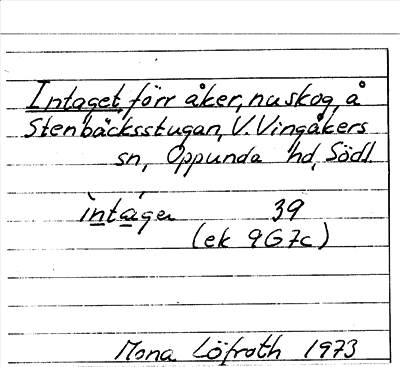 Intaget, förr åker, nu skog, å
Stenbäcksstugan, V. Vingåkers
sn, Oppunda hd, Södl
ìntáger 39
(ek 9G7c)
Mona Löfroth 1973